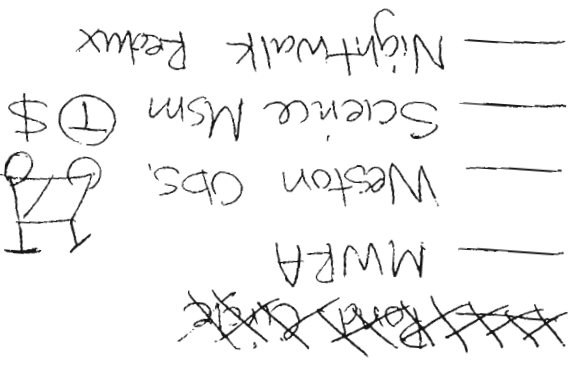 Pond Circle
MWRA
Weston Obs.
Science Msm T $
Nightwalk Redux